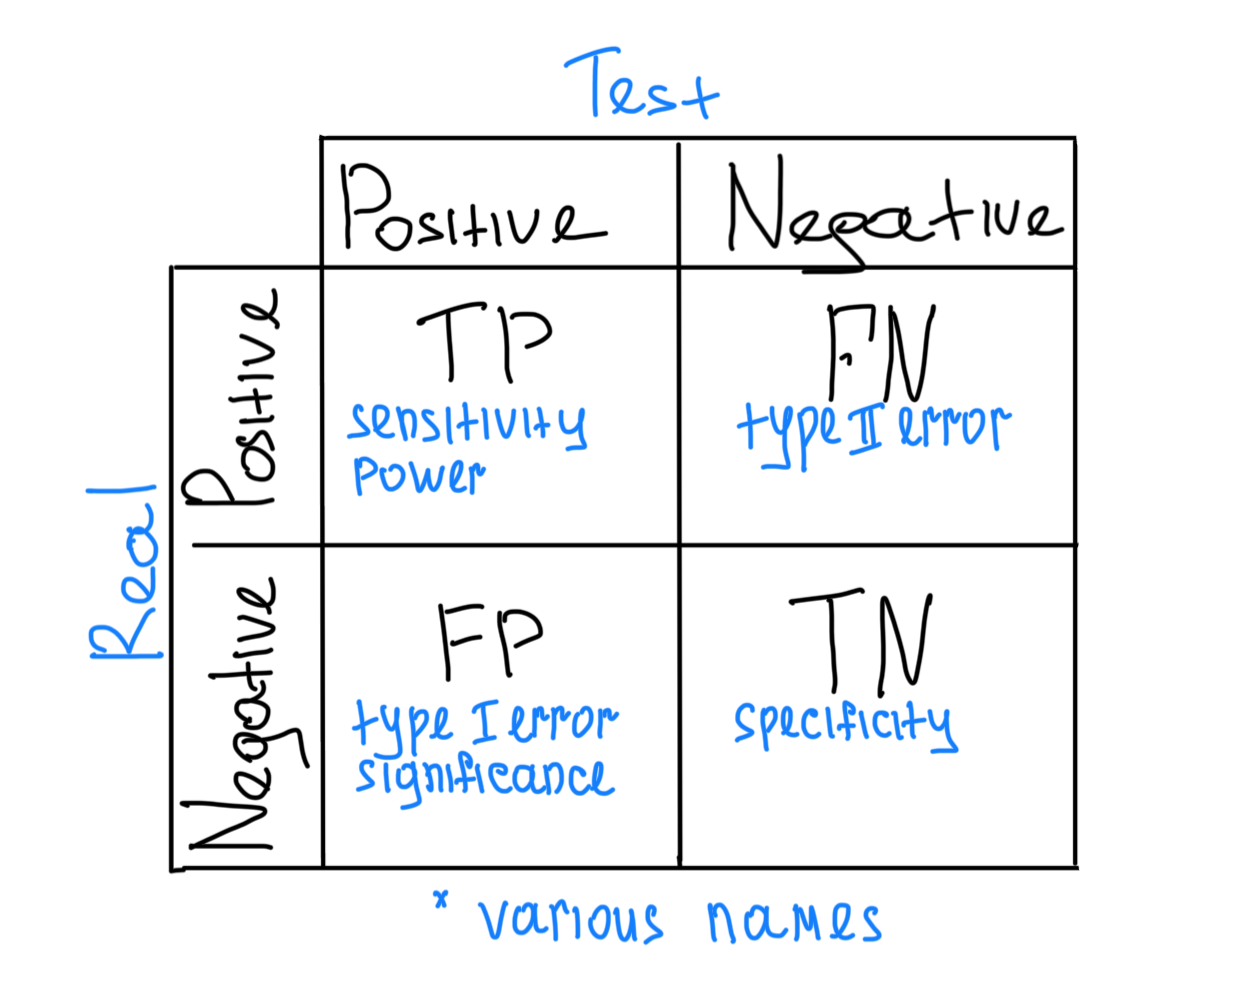 Test
Positive Negative
Real
Positive
TP
sensitivity
power
FN
type II error
Negative
FP
type I error
significance
TN
specificity
* various names